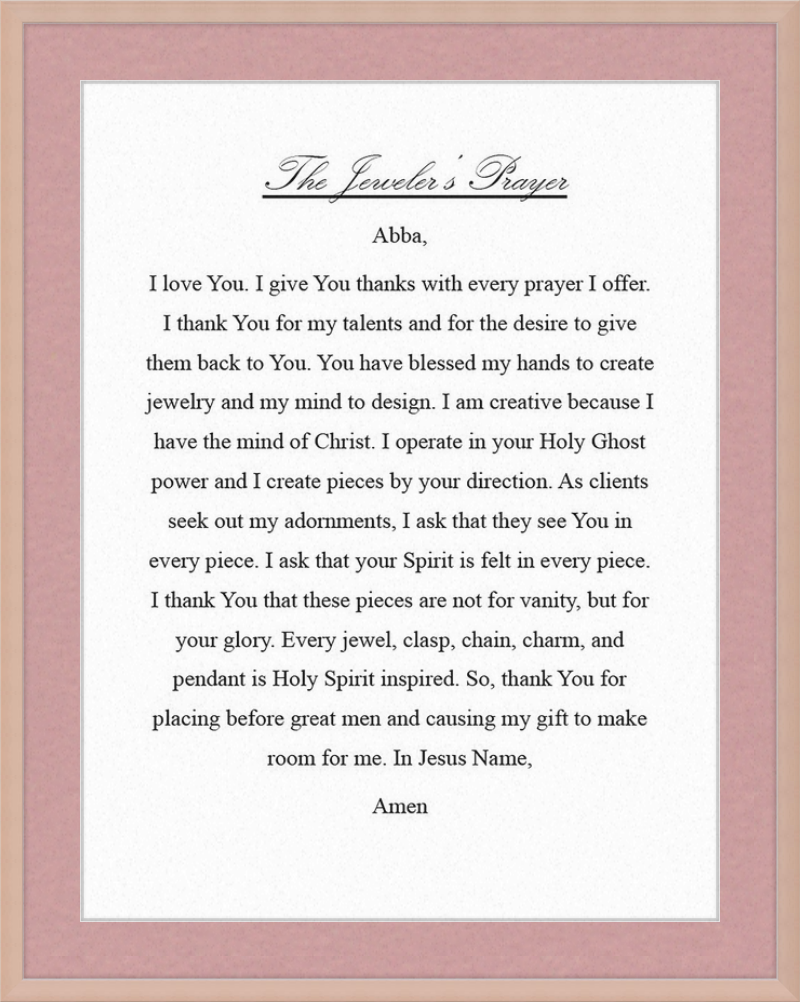 The Jeweler's Prayer
Abba,
I love You. I give You thanks with every prayer I offer.
I thank You for my talents and for the desire to give
them back to You. You have blessed my hands to create
jewelry and my mind to design. I am creative because I
have the mind of Christ. I operate in your Holy Ghost
power and I create pieces by your direction. As clients
seek out my adornments, I ask that they see You in
every piece. I ask that your Spirit is felt in every piece.
I thank You that these pieces are not for vanity, but for
your glory. Every jewel, clasp, chain, charm, and
pendant is Holy Spirit inspired. So, thank You for
placing before great men and causing my gift to make
room for me. In Jesus Name,
Amen